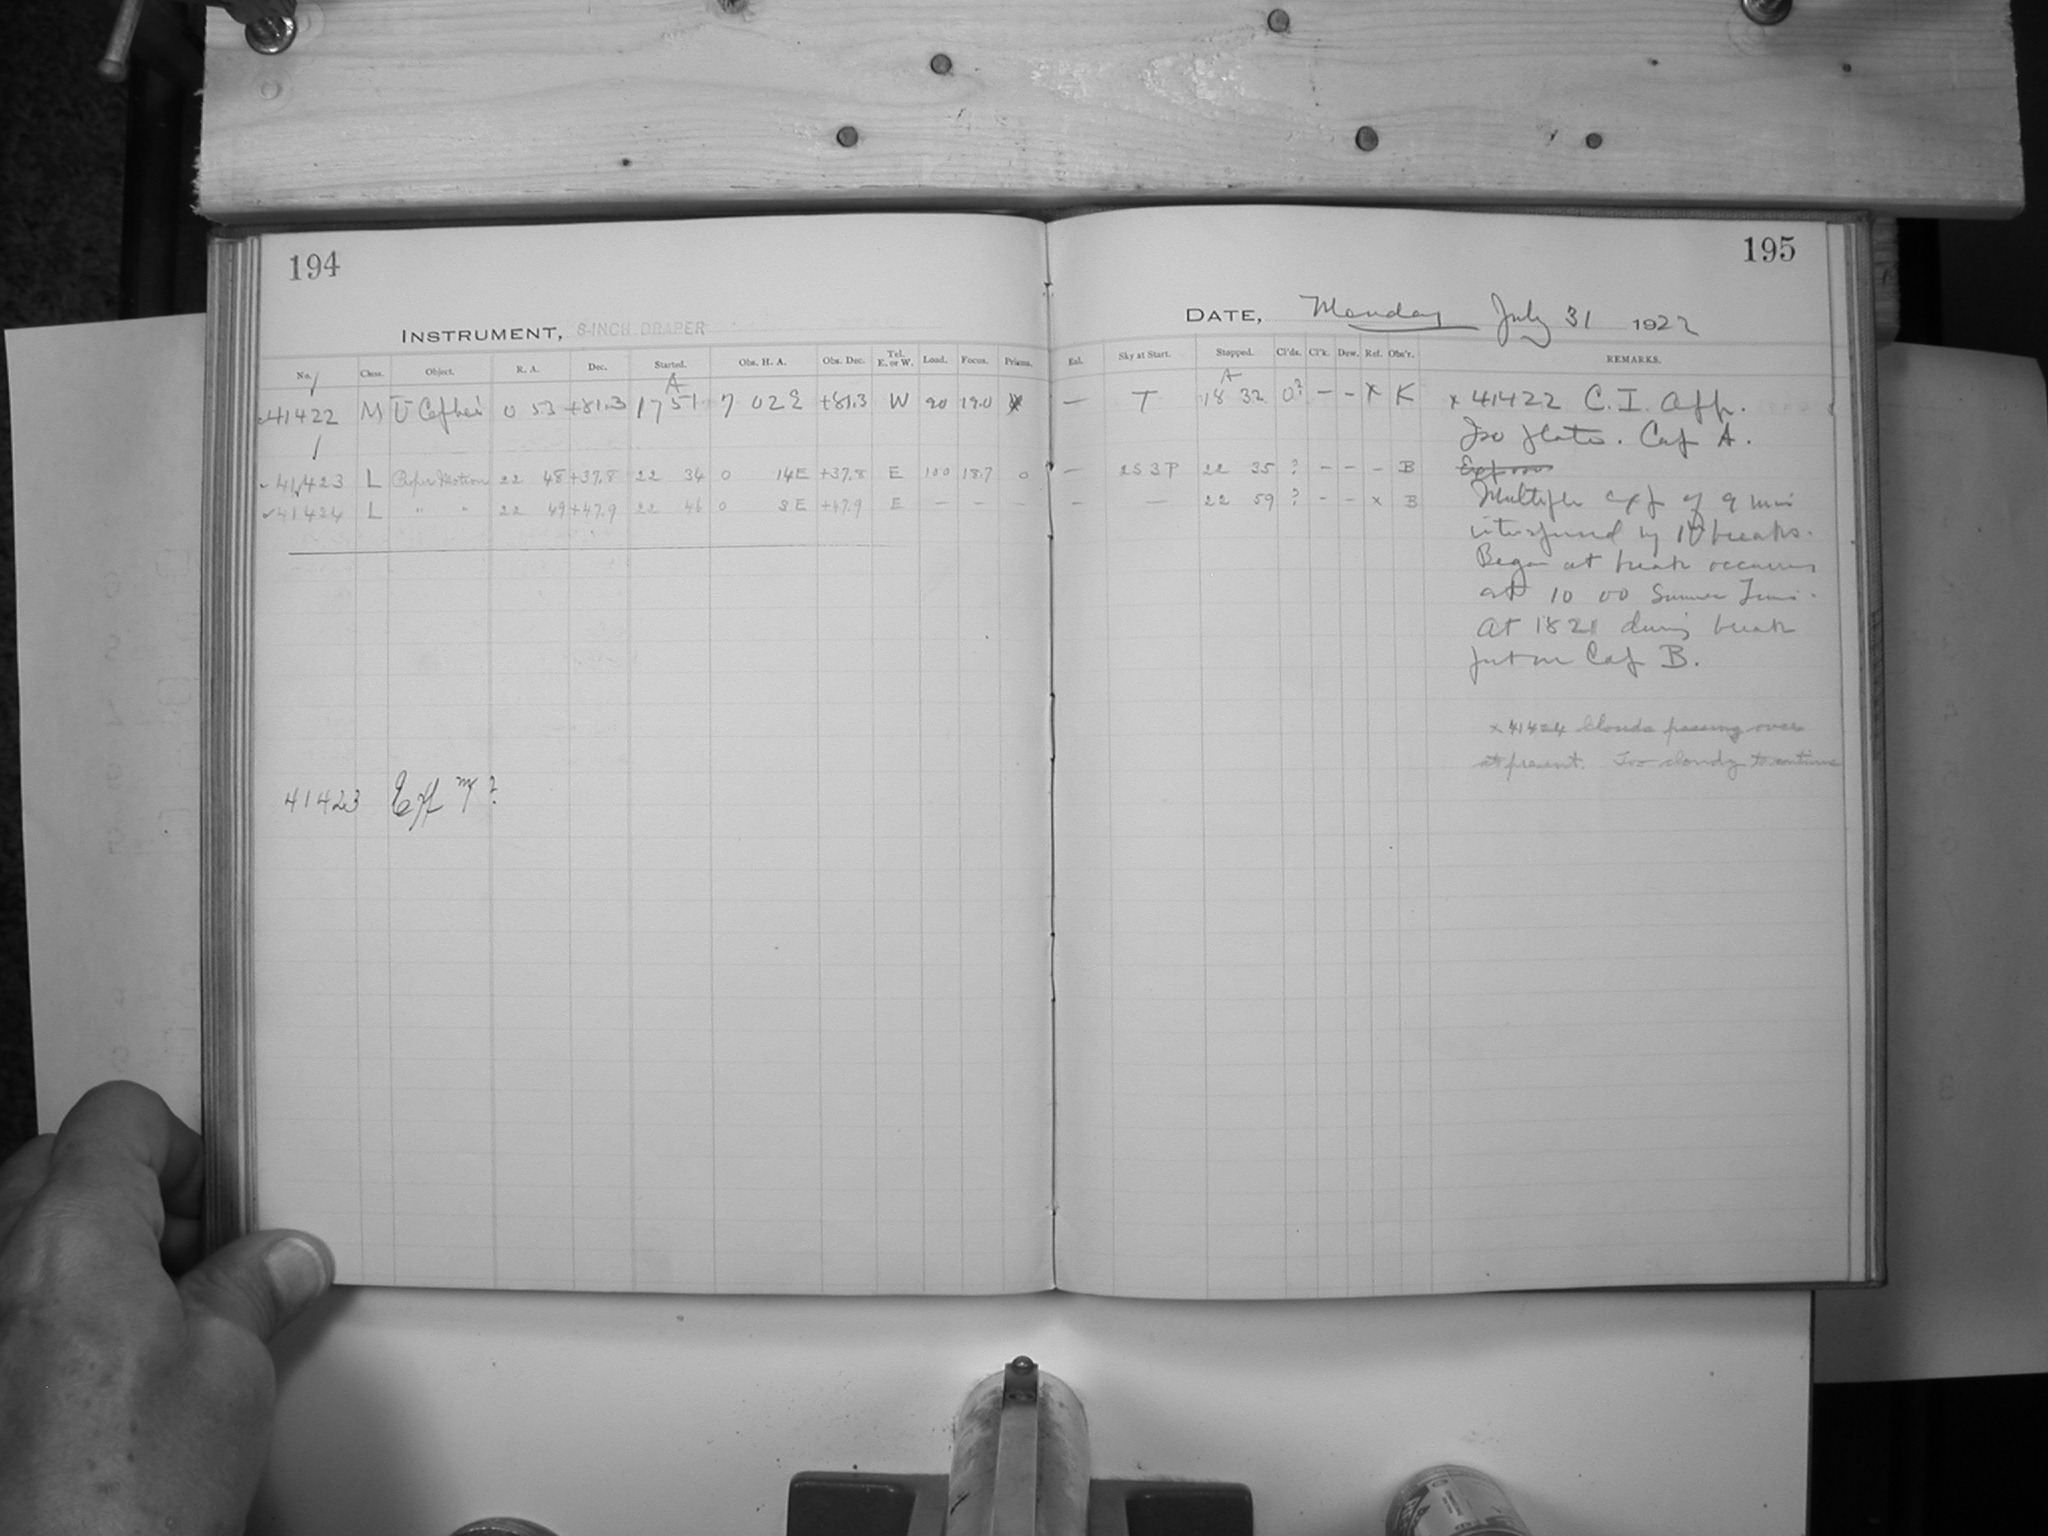 194
INSTRUMENT, 8-INCH DRAPER
No. Class. Object. R. A. Dec. Started. Obs. H. A. Obs. Dec. Tel. E. or W. Load. Focus. Prisms.
41422 M U Cephei 0 53 +81.3 A 17 51 7 02 +81.3 W 90 19.0
41423 L Proper Motion 22 48 +37.8 22 34 0 14E +37.8 E 100 18.7 0
41424 L " " 22 49 +47.9 22 46 0 3E +47.9 E — — —
41423 Exp ?
195
DATE, Monday July 31 1922
Sky at Start. Stopped. Cl'ds. Cl'k. Dew. Ref. Obs'r. REMARKS.
— T A 18 32 0? — — x K x 41422 C. I. App.
Iso plate. Cap A.
— 2S3P 22 35 ? — — — B
— — 22 59 ? — — x B Multiple exp of 9 min
interspersed by 10 breaks.
Began at break occurring
at 10 00 Summer Time.
At 18 21 during break
put on Cap B.
x 41424 Clouds passing over
at present. Too cloudy to continue